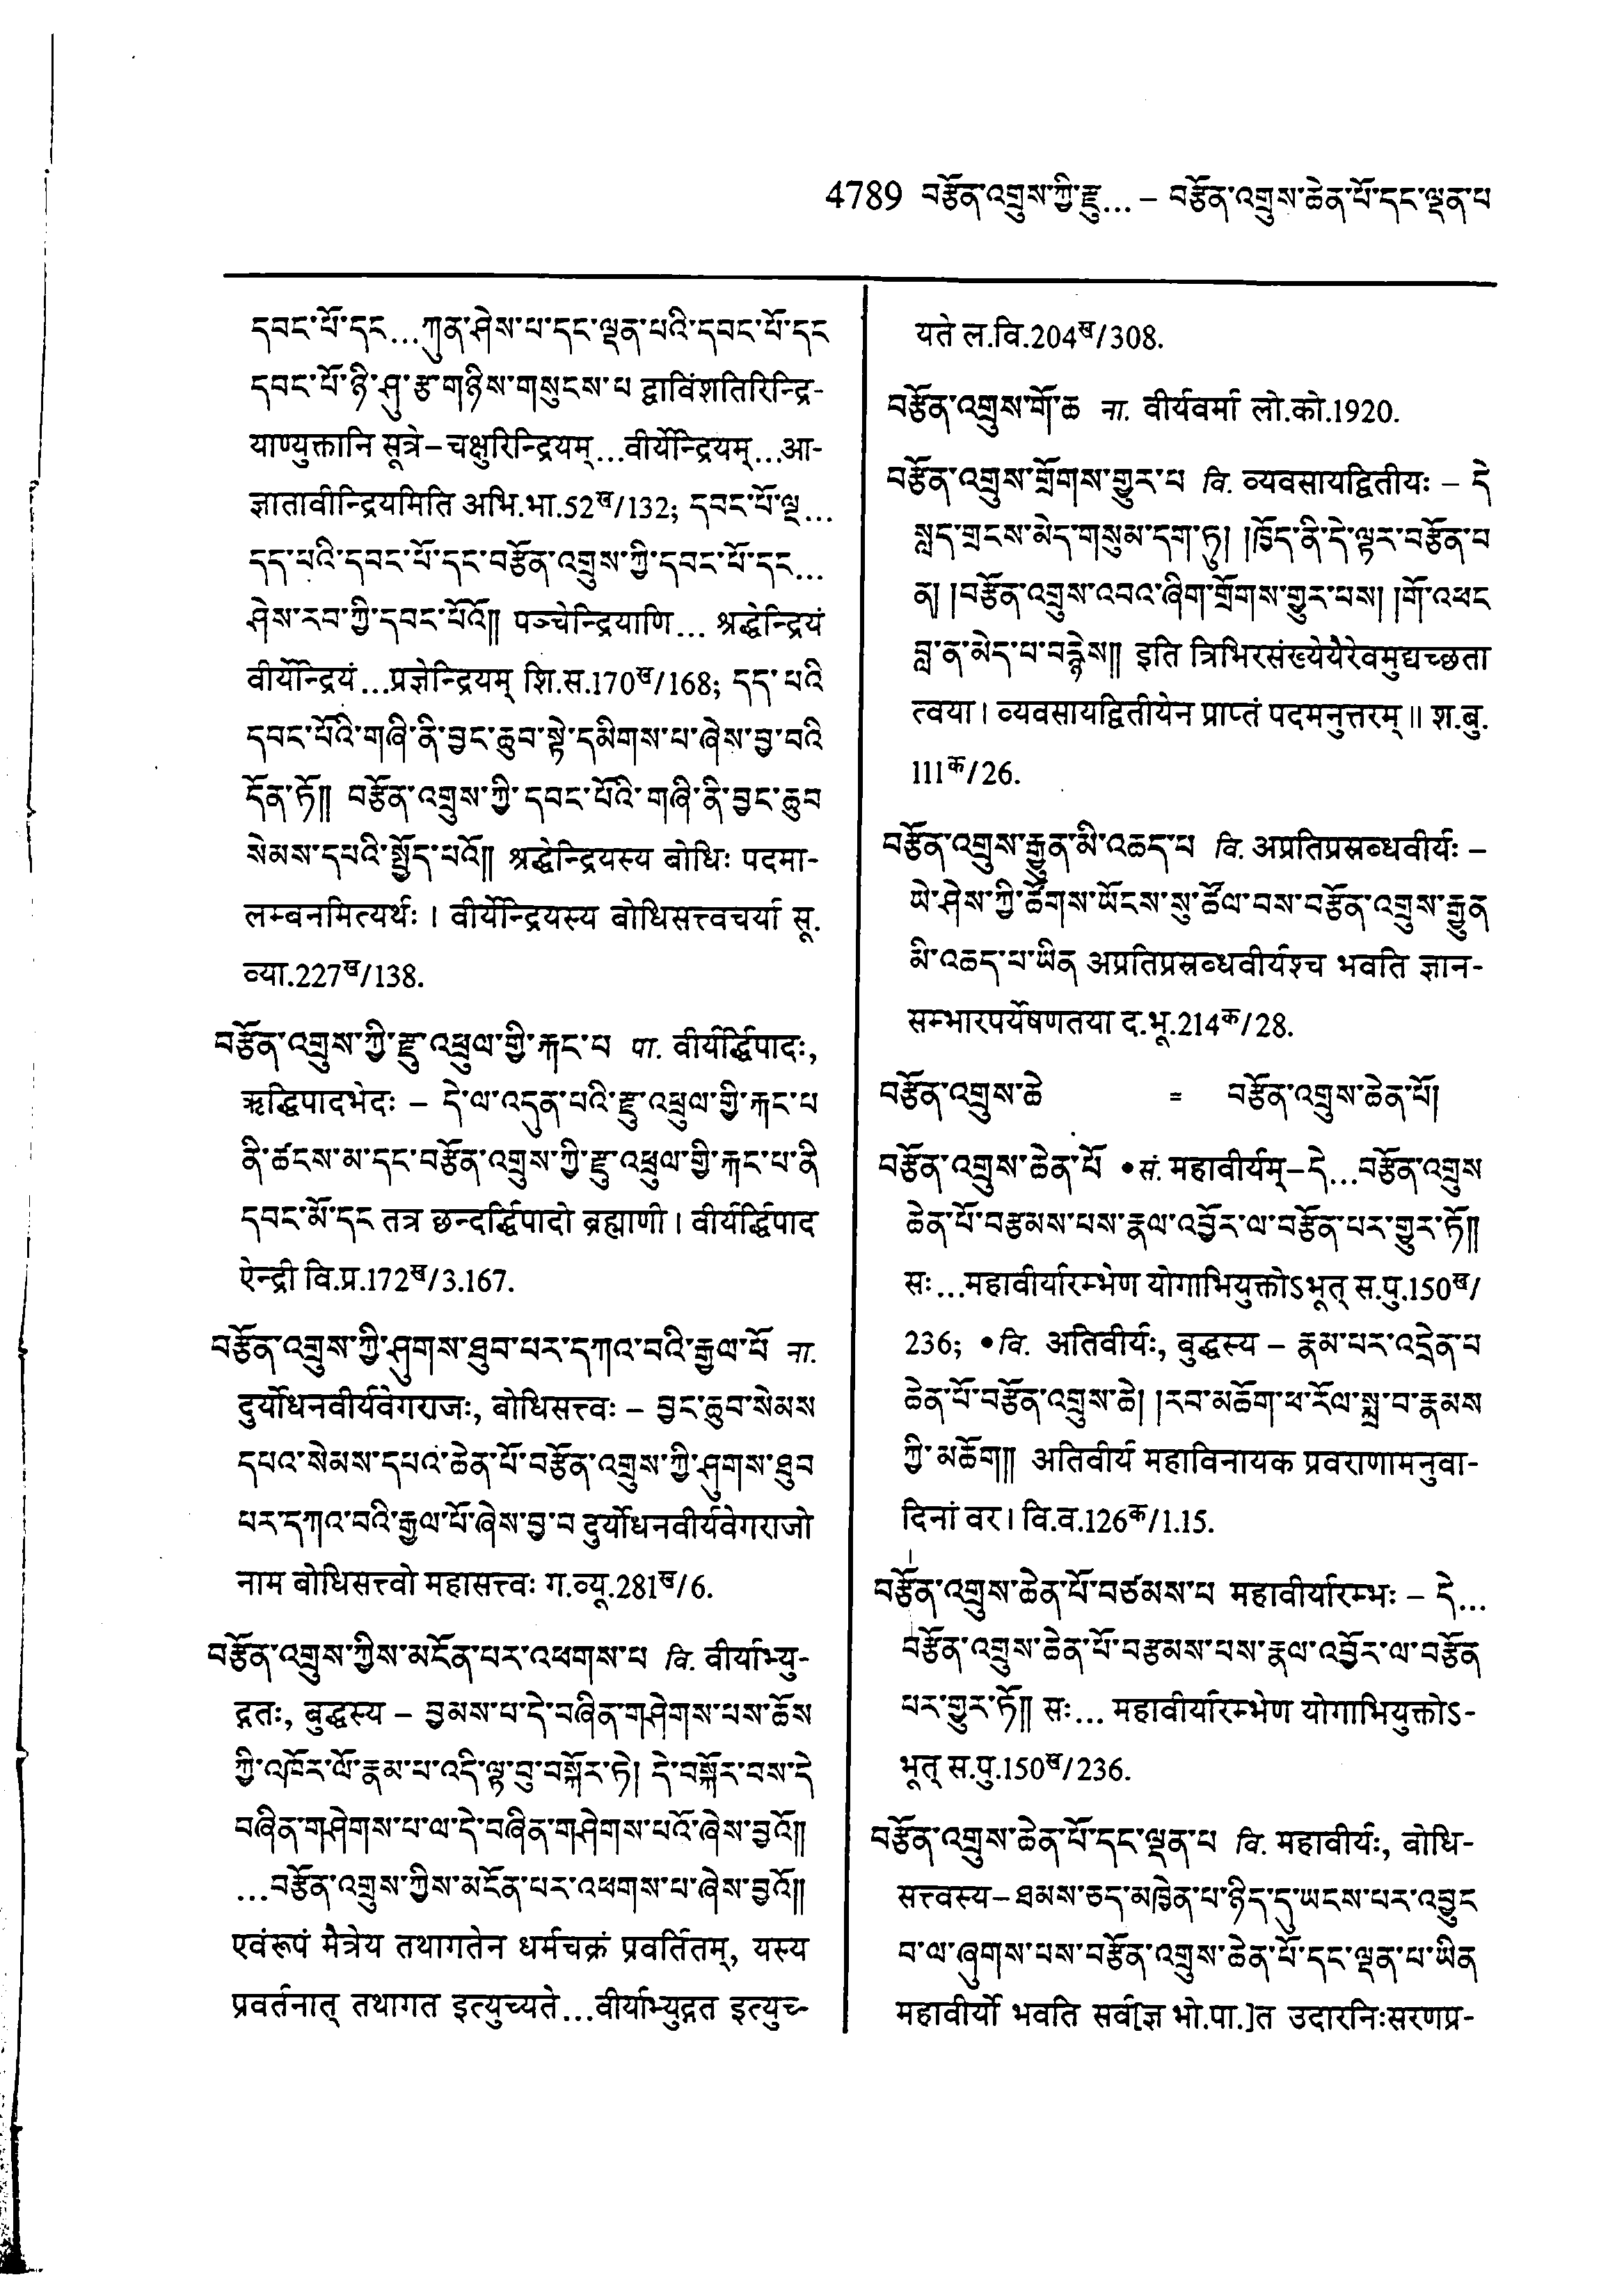 4789 བརྩོན་འགྲུས་ཀྱི་རྫུ... – བརྩོན་འགྲུས་ཆེན་པོ་དང་ལྡན་པ
དབང་པོ་དང...ཀུན་ཤེས་པ་དང་ལྡན་པའི་དབང་པོ་དང
དབང་པོ་ཉི་ཤུ་རྩ་གཉིས་གསུངས་པ द्वाविंशतिरिन्द्रि-
याण्युक्तानि सूत्रे–चक्षुरिन्द्रियम्...वीर्येन्द्रियम्...आ-
ज्ञातावीन्द्रियमिति अभि.भा.52ख/132; དབང་པོ་ལྔ...
དད་པའི་དབང་པོ་དང་བརྩོན་འགྲུས་ཀྱི་དབང་པོ་དང...
ཤེས་རབ་ཀྱི་དབང་པོའོ།། पञ्चेन्द्रियाणि... श्रद्धेन्द्रियं
वीर्येन्द्रियं...प्रज्ञेन्द्रियम् शि.स.170ख/168; དད་པའི
དབང་པོའི་གཞི་ནི་བྱང་ཆུབ་སྟེ་དམིགས་པ་ཞེས་བྱ་བའི
དོན་ཏོ།། བརྩོན་འགྲུས་ཀྱི་དབང་པོའི་གཞི་ནི་བྱང་ཆུབ
སེམས་དཔའི་སྤྱོད་པའོ།། श्रद्धेन्द्रियस्य बोधिः पदमा-
लम्बनमित्यर्थः । वीर्येन्द्रियस्य बोधिसत्त्वचर्या सू.
व्या.227ख/138.
བརྩོན་འགྲུས་ཀྱི་རྫུ་འཕྲུལ་གྱི་རྐང་པ पा. वीर्यर्द्धिपादः,
ऋद्धिपादभेदः – དེ་ལ་འདུན་པའི་རྫུ་འཕྲུལ་གྱི་རྐང་པ
ནི་ཚངས་མ་དང་བརྩོན་འགྲུས་ཀྱི་རྫུ་འཕྲུལ་གྱི་རྐང་པ་ནི
དབང་མོ་དང तत्र छन्दर्द्धिपादो ब्रह्माणी । वीर्यर्द्धिपाद
ऐन्द्री वि.प्र.172ख/3.167.
བརྩོན་འགྲུས་ཀྱི་ཤུགས་ཐུབ་པར་དཀའ་བའི་རྒྱལ་པོ ना.
दुर्योधनवीर्यवेगराजः, बोधिसत्त्वः – བྱང་ཆུབ་སེམས
དཔའ་སེམས་དཔའ་ཆེན་པོ་བརྩོན་འགྲུས་ཀྱི་ཤུགས་ཐུབ
པར་དཀའ་བའི་རྒྱལ་པོ་ཞེས་བྱ་བ दुर्योधनवीर्यवेगराजो
नाम बोधिसत्त्वो महासत्त्वः ग.व्यू.281ख/6.
བརྩོན་འགྲུས་ཀྱིས་མངོན་པར་འཕགས་པ वि. वीर्याभ्यु-
द्गतः, बुद्धस्य – བྱམས་པ་དེ་བཞིན་གཤེགས་པས་ཆོས
ཀྱི་འཁོར་ལོ་རྣམ་པ་འདི་ལྟ་བུ་བསྐོར་ཏེ། དེ་བསྐོར་བས་དེ
བཞིན་གཤེགས་པ་ལ་དེ་བཞིན་གཤེགས་པའོ་ཞེས་བྱའོ།།
...བརྩོན་འགྲུས་ཀྱིས་མངོན་པར་འཕགས་པ་ཞེས་བྱའོ།།
एवंरूपं मैत्रेय तथागतेन धर्मचक्रं प्रवर्तितम्, यस्य
प्रवर्तनात् तथागत इत्युच्यते...वीर्याभ्युद्गत इत्युच्-
यते ल.वि.204ख/308.
བརྩོན་འགྲུས་གོ་ཆ ना. वीर्यवर्मा लो.को.1920.
བརྩོན་འགྲུས་གྲོགས་གྱུར་པ वि. व्यवसायद्वितीयः – དེ
སླད་གྲངས་མེད་གསུམ་དག་ཏུ། །ཁྱོད་ནི་དེ་ལྟར་བརྩོན་པ
ན། །བརྩོན་འགྲུས་འབའ་ཞིག་གྲོགས་གྱུར་པས། །གོ་འཕང
བླ་ན་མེད་པ་བརྙེས།། इति त्रिभिरसंख्येयैरेवमुद्यच्छता
त्वया । व्यवसायद्वितीयेन प्राप्तं पदमनुत्तरम् ॥ श.बु.
111क/26.
བརྩོན་འགྲུས་རྒྱུན་མི་འཆད་པ वि. अप्रतिप्रस्रब्धवीर्यः –
ཡེ་ཤེས་ཀྱི་ཚོགས་ཡོངས་སུ་ཚོལ་བས་བརྩོན་འགྲུས་རྒྱུན
མི་འཆད་པ་ཡིན अप्रतिप्रस्रब्धवीर्यश्च भवति ज्ञान-
सम्भारपर्येषणतया द.भू.214क/28.
བརྩོན་འགྲུས་ཆེ = བརྩོན་འགྲུས་ཆེན་པོ།
བརྩོན་འགྲུས་ཆེན་པོ • सं. महावीर्यम्–དེ...བརྩོན་འགྲུས
ཆེན་པོ་བརྩམས་པས་རྣལ་འབྱོར་ལ་བརྩོན་པར་གྱུར་ཏོ།།
सः...महावीर्यारम्भेण योगाभियुक्तोऽभूत् स.पु.150ख/
236; • वि. अतिवीर्यः, बुद्धस्य – རྣམ་པར་འདྲེན་པ
ཆེན་པོ་བརྩོན་འགྲུས་ཆེ། །རབ་མཆོག་ཕ་རོལ་སྨྲ་བ་རྣམས
ཀྱི་མཆོག།། अतिवीर्य महाविनायक प्रवराणामनुवा-
दिनां वर । वि.व.126क/1.15.
བརྩོན་འགྲུས་ཆེན་པོ་བཙམས་པ महावीर्यारम्भः – དེ...
བརྩོན་འགྲུས་ཆེན་པོ་བརྩམས་པས་རྣལ་འབྱོར་ལ་བརྩོན
པར་གྱུར་ཏོ།། सः... महावीर्यारम्भेण योगाभियुक्तोऽ-
भूत् स.पु.150ख/236.
བརྩོན་འགྲུས་ཆེན་པོ་དང་ལྡན་པ वि. महावीर्यः, बोधि-
सत्त्वस्य– ཐམས་ཅད་མཁྱེན་པ་ཉིད་དུ་ཡངས་པར་འབྱུང
བ་ལ་ཞུགས་པས་བརྩོན་འགྲུས་ཆེན་པོ་དང་ལྡན་པ་ཡིན
महावीर्यो भवति सर्व[ज्ञ भो.पा.]त उदारनिःसरणप्र-